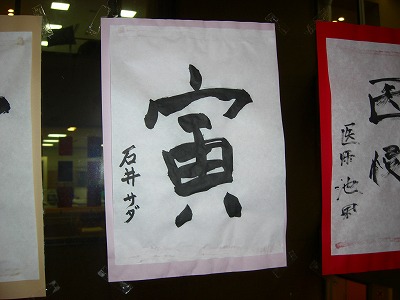 寅
石井サダ
医
医師 池田